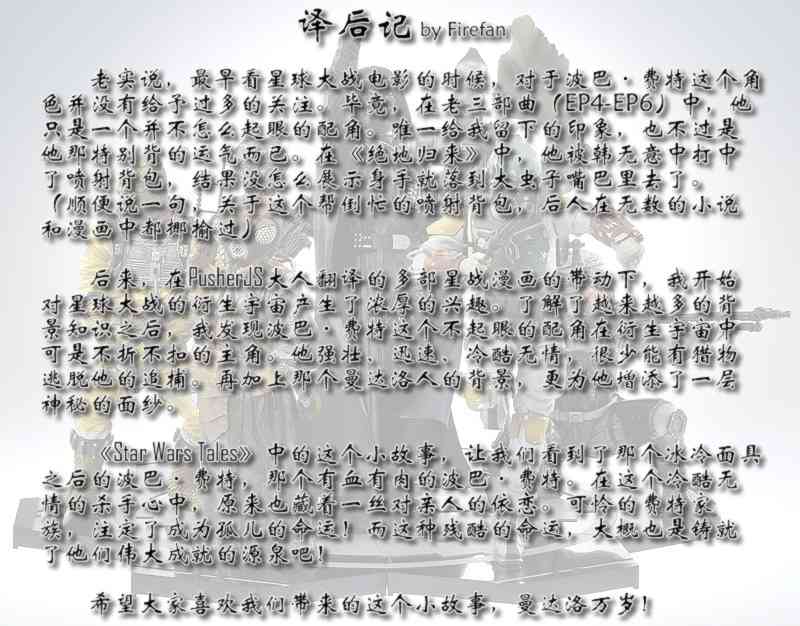 译后记 by Firefan
老实说，最早看星球大战电影的时候，对于波巴·费特这个角
色并没有给予过多的关注。毕竟，在老三部曲（EP4-EP6）中，他
只是一个并不怎么起眼的配角。唯一给我留下的印象，也不过是
他那特别背的运气而已。在《绝地归来》中，他被韩无意中打中
了喷射背包，结果没怎么展示身手就落到大虫子嘴巴里去了。
（顺便说一句，关于这个帮倒忙的喷射背包，后人在无数的小说
和漫画中都揶揄过）
后来，在PusherJS大人翻译的多部星战漫画的带动下，我开始
对星球大战的衍生宇宙产生了浓厚的兴趣。了解了越来越多的背
景知识之后，我发现波巴·费特这个不起眼的配角在衍生宇宙中
可是不折不扣的主角。他强壮、迅速、冷酷无情，很少能有猎物
逃脱他的追捕。再加上那个曼达洛人的背景，更为他增添了一层
神秘的面纱。
《Star Wars Tales》中的这个小故事，让我们看到了那个冰冷面具
之后的波巴·费特，那个有血有肉的波巴·费特。在这个冷酷无
情的杀手心中，原来也藏着一丝对亲人的依恋。可怜的费特家
族，注定了成为孤儿的命运！而这种残酷的命运，大概也是铸就
了他们伟大成就的源泉吧！
希望大家喜欢我们带来的这个小故事，曼达洛万岁！